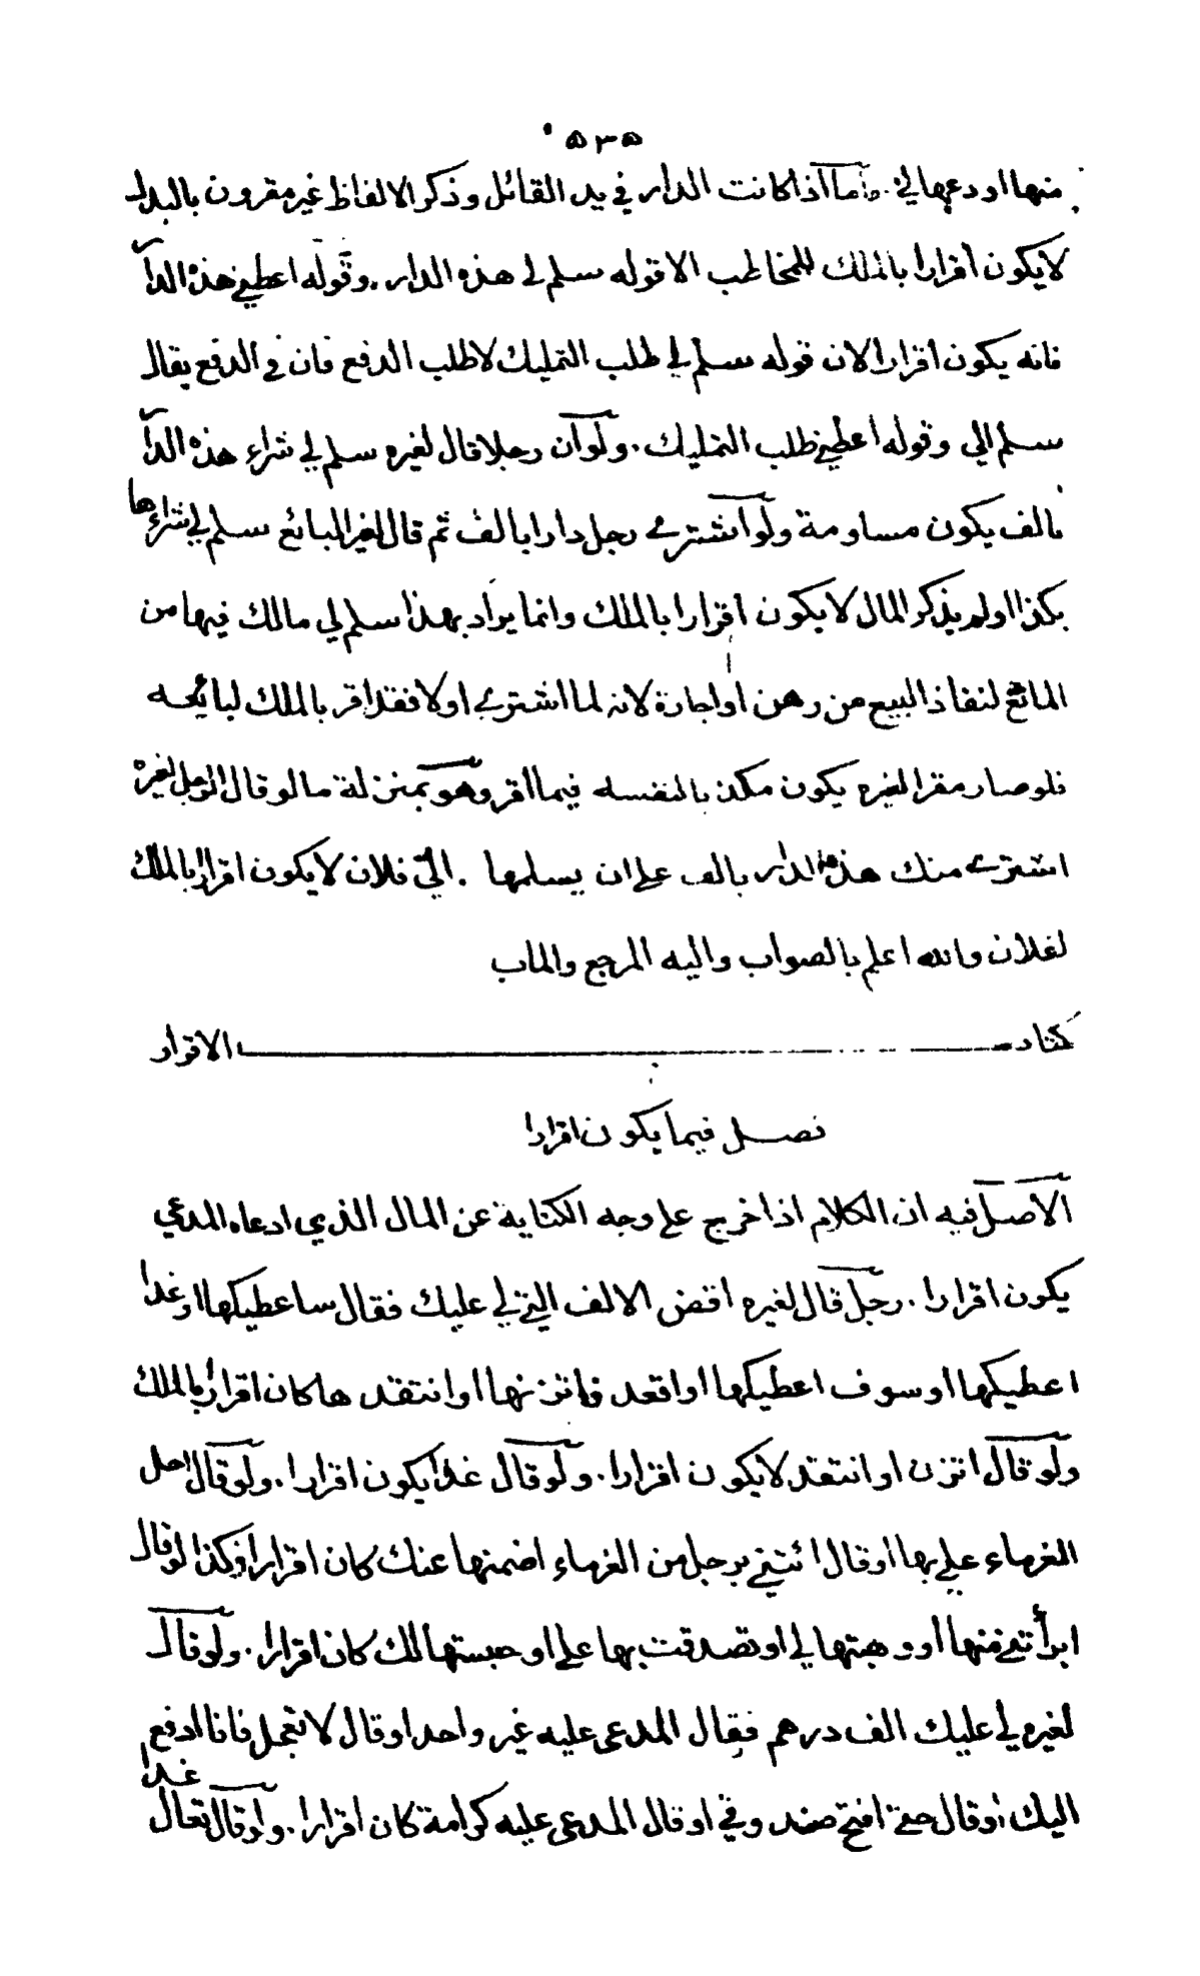 ٥٣٥
منها او دعهالي واما اذا كانت الدار في يد القائل وذكر الالفاظ غير مقرون بالبدل
لا يكون اقرارا بالملك للمخاطب الا قوله سلم لى هذه الدار. وقوله اعطني هذه الدار
فانه يكون اقرارا لان قوله سلم لي طلب التمليك لا طلب الدفع فان في الدفع يقال
سلم الي وقوله اعطني طلب التمليك. ولو ان رجلا قال لغيره سلم لي شراء هذه الدار
بالف يكون مساومة ولو اشترى رجل دارا بالف ثم قال لغير البائع سلم لي شراءها
بكذا او لم يذكر المال لا يكون اقرارا بالملك وانما يراد بهذا سلم لي مالك فيها من
المانع لنفاذ البيع من رهن او اجارة لانه لما اشترى اولا فقد اقر بالملك لبائعه
فلو صار مقرا لغيره يكون مكذبا لنفسه فيما اقر وهو بمنزلة ما لو قال الرجل لغيره
اشترى منك هذه الدار بالف على ان يسلمها الي فلان لا يكون اقرارا بالملك
لفلان والله اعلم بالصواب واليه المرجع والماب
كتاب الاقرار
فصل فيما يكون اقرارا
الاصل فيه ان الكلام اذا خرج على وجه الكناية عن المال الذي ادعاه المدعي
يكون اقرارا. رجل قال لغيره اقض الالف التي لي عليك فقال ساعطيكها او غدا
اعطيكها او سوف اعطيكها او اقعد فاتزنها او انتقدها كان اقرارا بالملك
ولو قال اتزن او انتقد لا يكون اقرارا. ولو قال غدا يكون اقرارا. ولو قال احل
الغرماء علي بها او قال ائتني برجل من الغرماء اضمنها عنك كان اقرارا وكذا لو قال
ابرأتني منها او وهبتها لي او تصدقت بها علي او حبستها لك كان اقرارا. ولو قال
لغيره لي عليك الف درهم فقال المدعى عليه غير واحد او قال لا تعجل فانا ادفع
اليك او قال حتى افتح صندوقي او قال المدعى عليه كرامة كان اقرارا. ولو قال تعال غدا